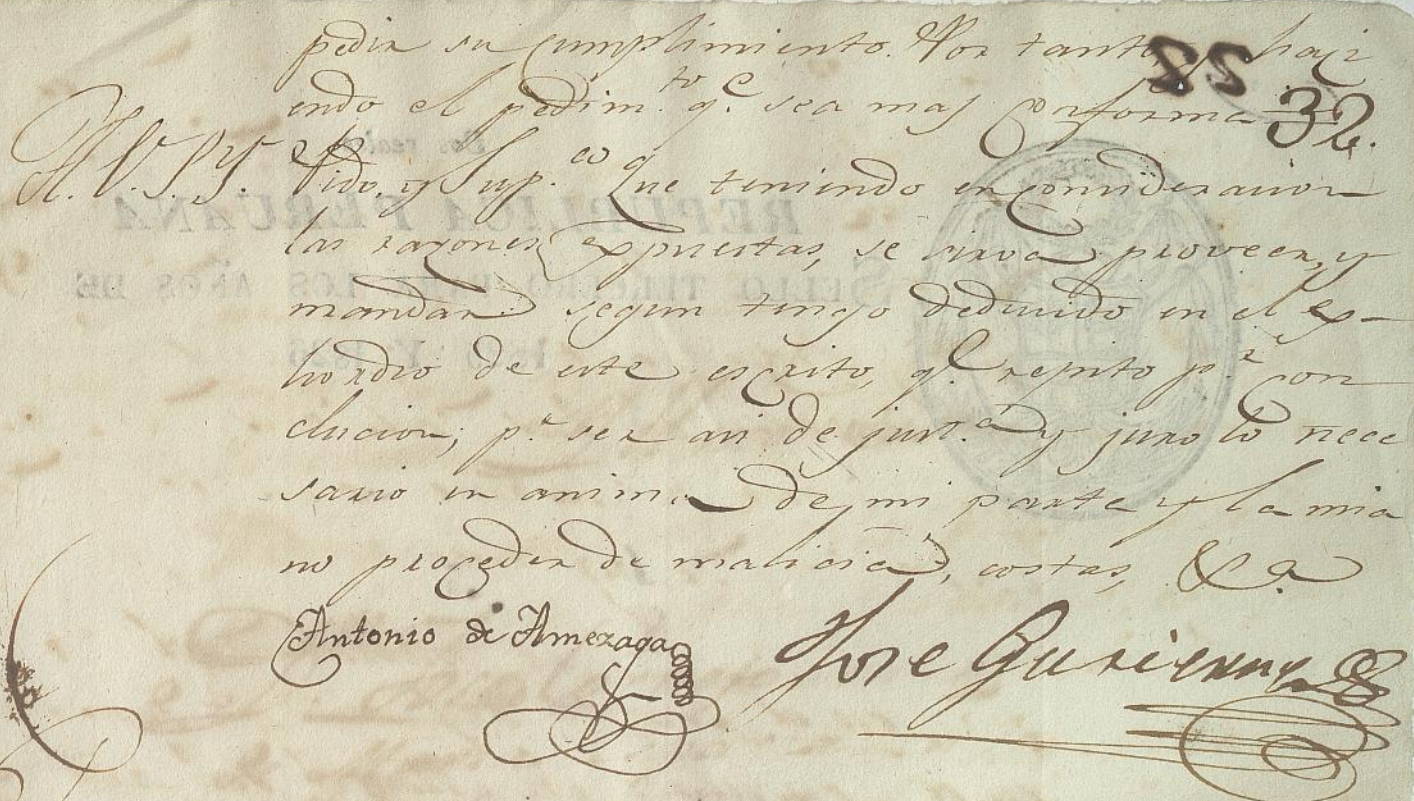 pedir su cumplimiento. Por tanto, haci
endo el pedim.to q.e sea mas conforme
28
32.
A V. S. pido, y sup.co que teniendo en consideracion
las razones expuestas, se sirva proveer, y
mandar segun tengo deducido en el ex-
hordio de este escrito, q.e repito p.r con
clucion; p.r ser asi de just.a y juro lo nece
sario en anima de mi parte y la mia
no proceder de malicia, costas, &.a
Antonio de Amezaga
Jose Gutierrez
Dos reales
REPUBLICA PERUANA
SELLO TERCERO PARA LOS AÑOS DE